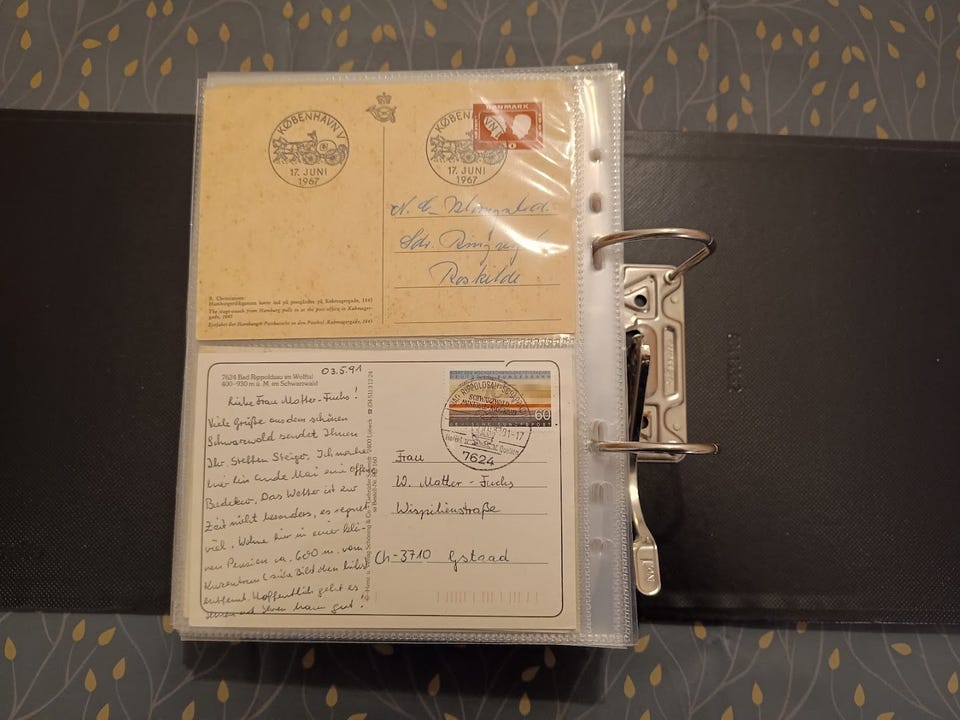 KØBENHAVN V
17. JUNI
1967
KØBENHAVN V
17. JUNI
1967
DANMARK
Roskilde
R. Christiansen:
Hamburgerdiligencen kører ind på postgården på Købmagergade, 1845
The stage-coach from Hamburg pulls in at the post office in Købmager-
gade, 1845
Einfahrt der Hamburger Postkutsche in den Posthof, Købmagergade, 1845
7624 Bad Rippoldsau im Wolftal
600-930 m ü. M. im Schwarzwald
03.5.91
Liebe Frau Matter-Fuchs!
Viele Grüße aus dem schönen
Schwarzwald sendet Ihnen
Ihr Steffen Steiger. Ich mache
hier bis Ende Mai eine offene
Badekur. Das Wetter ist zur
Zeit nicht besonders, es regnet
viel. Wohne hier in einer klei-
nen Pension ca. 600 m vom
Kurzentrum (siehe Bildchen
entfernt. Hoffentlich geht es
Ihnen und gut!
60
DEUTSCHE BUNDESPOST
7624
Frau
W. Matter-Fuchs
Wispilienstraße
Ch-3710 Gstaad